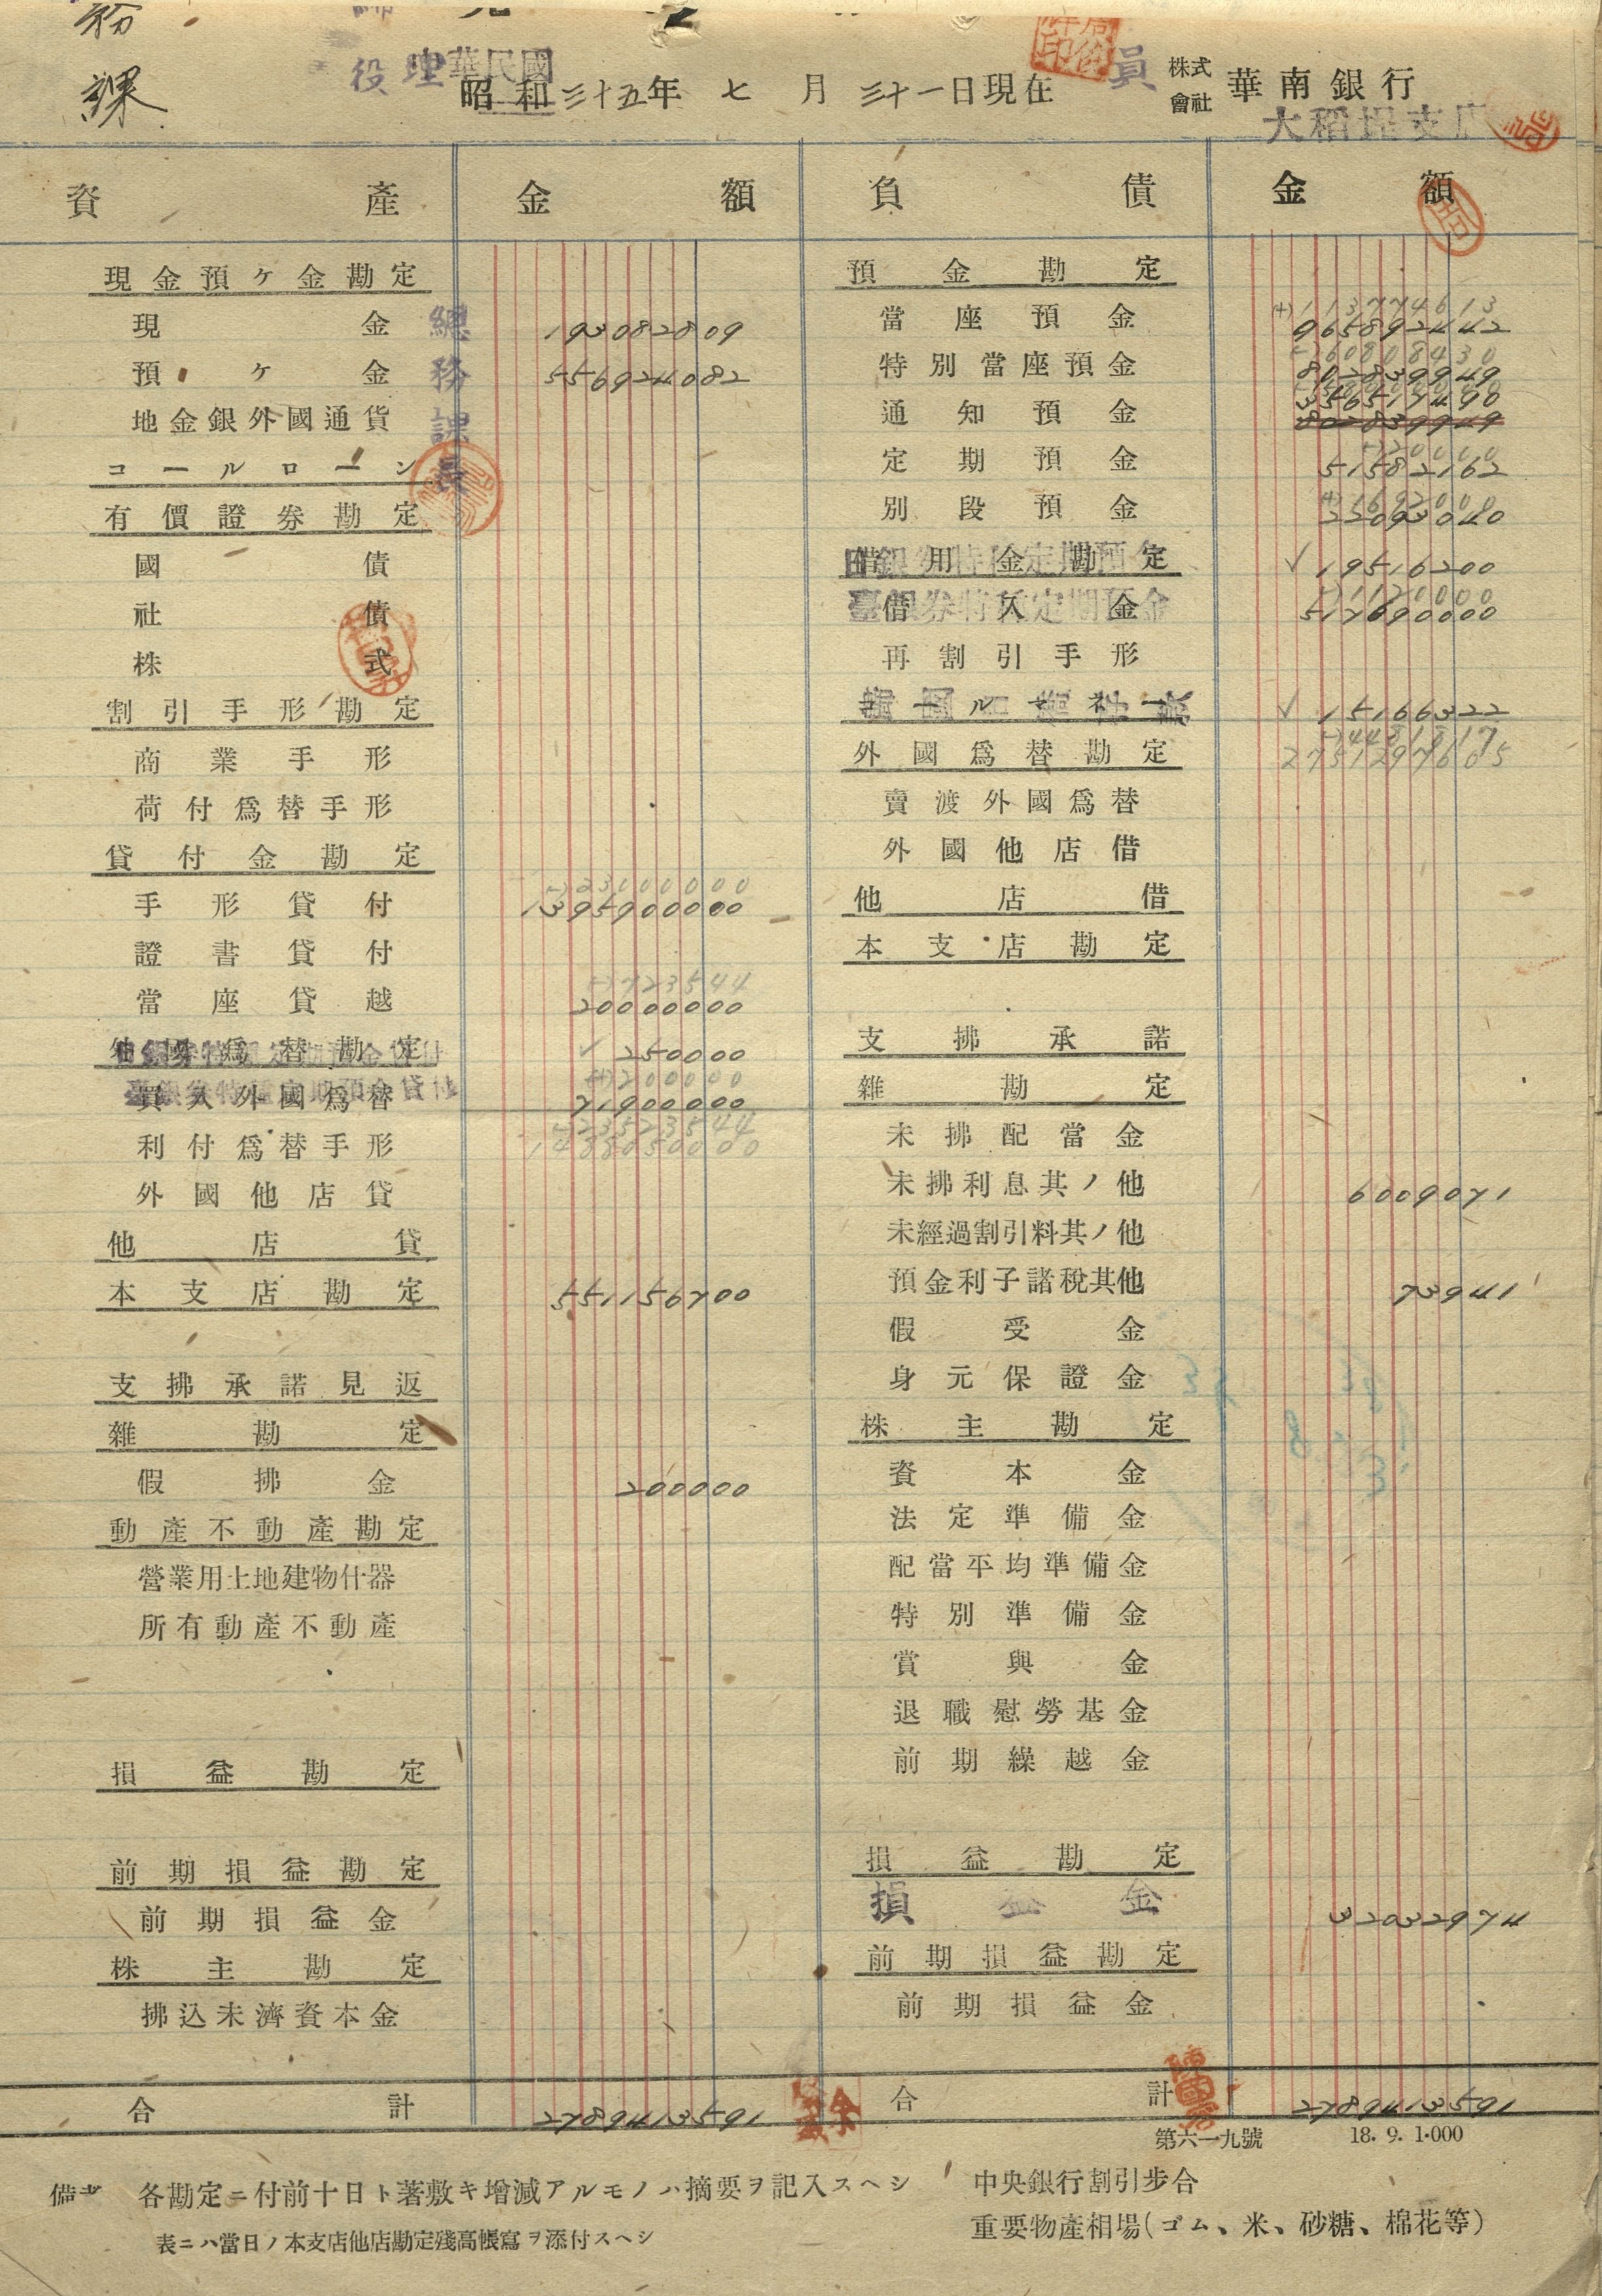 課
役 理
中華民國
昭和三十五年 七月 三十一日現在
員
株式會社 華南銀行
大稻埕支店
資產 金額 負債 金額
現金預ケ金勘定 預金勘定
(+) 113774613
現金 193082809 當座預金 965892442
(-) 60808430
預ケ金 556924082 特別當座預金 802839949
地金銀外國通貨 通知預金 356517490
802839949
コールローン 定期預金 51582162
有價證券勘定 別段預金 22093040
國債 借用金勘定 ✓ 19516200
(-) 1120000
社債 借入金 517690000
株式 再割引手形
割引手形勘定 ✓ 15166322
商業手形 外國爲替勘定
荷付爲替手形 賣渡外國爲替
貸付金勘定 外國他店借
(-) 23000000
手形貸付 1395900000 他店借
證書貸付 本支店勘定
(-) 7723544
當座貸越 20000000
外國爲替勘定 ✓ 250000 支拂承諾
(+) 200000
買入外國爲替 71900000 雜勘定
利付爲替手形 未拂配當金
外國他店貸 未拂利息其ノ他 6009071
他店貸 未經過割引料其ノ他
本支店勘定 551156700 預金利子諸稅其他 73941
假受金
支拂承諾見返 身元保證金
雜勘定 株主勘定
假拂金 200000 資本金
動產不動產勘定 法定準備金
營業用土地建物什器 配當平均準備金
所有動產不動產 特別準備金
賞與金
退職慰勞基金
損益勘定 前期繰越金
前期損益勘定 損益勘定
前期損益金 損益金 32032974
株主勘定 前期損益勘定
拂込未濟資本金 前期損益金
合計 2789413591 合計 2789413591
第六一九號 18. 9. 1·000
備考 各勘定ニ付前十日ト著敷キ增減アルモノハ摘要ヲ記入スヘシ 中央銀行割引步合
表ニハ當日ノ本支店他店勘定殘高帳寫ヲ添付スヘシ 重要物產相場(ゴム、米、砂糖、棉花等)
總務課長